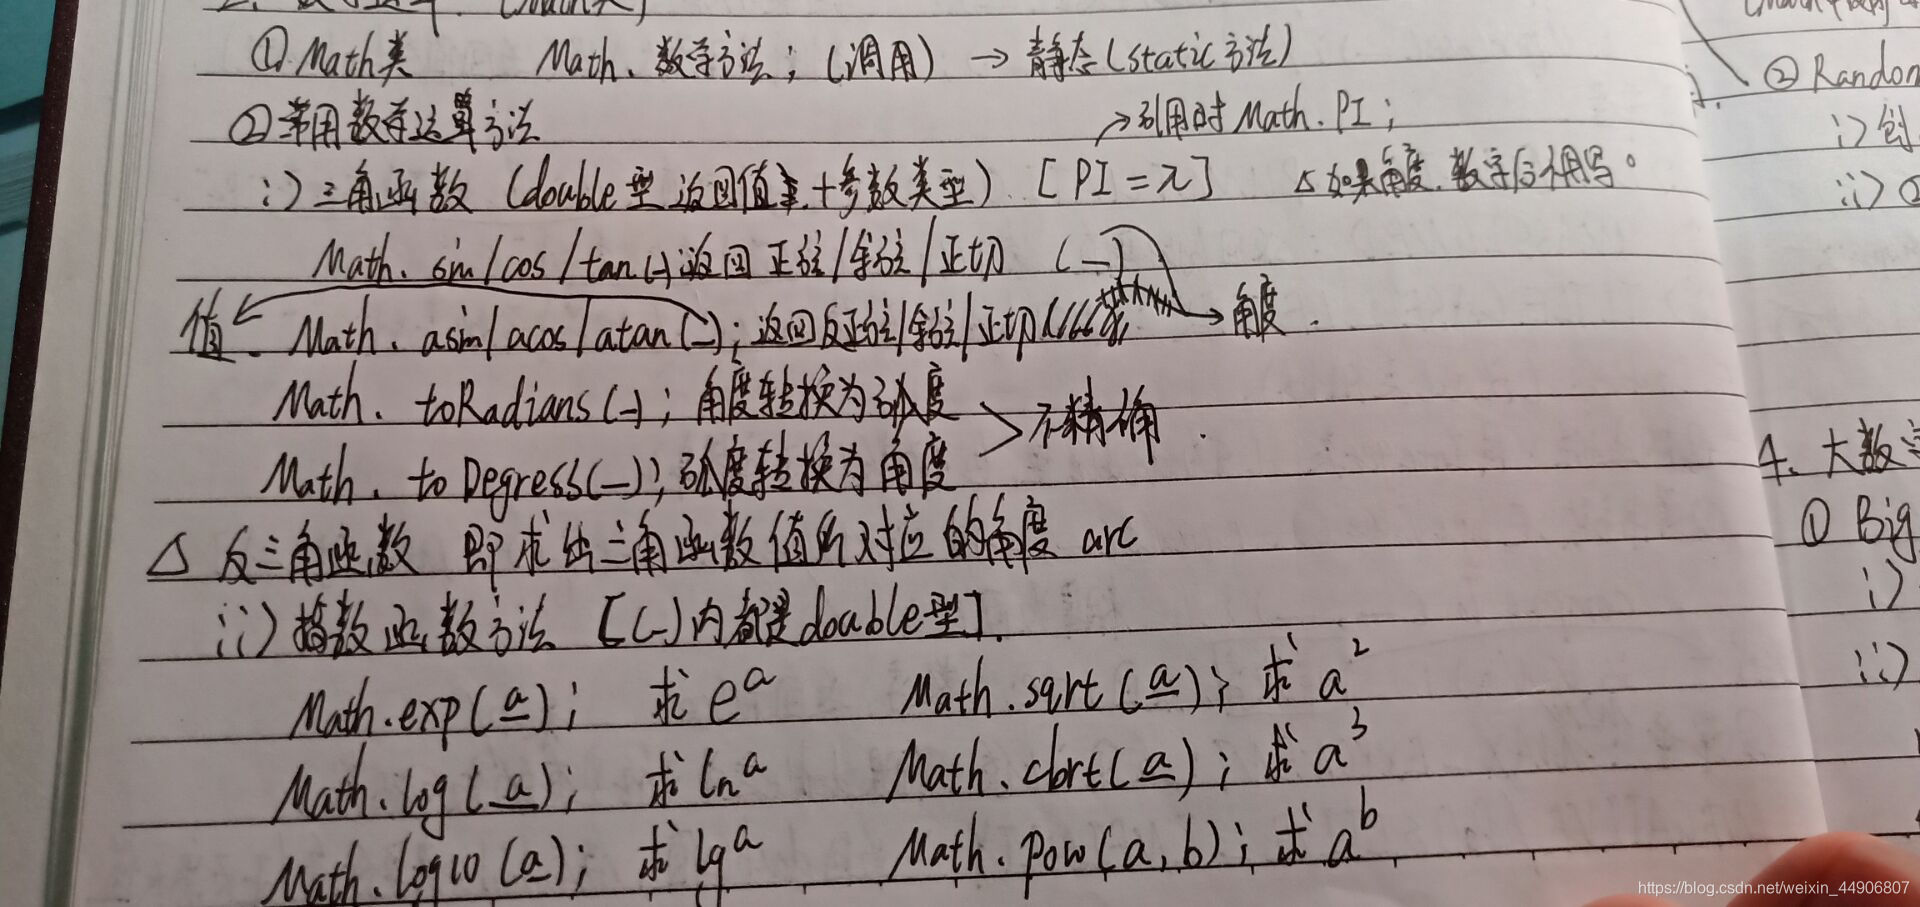 (Math类)
①Math类 Math.数学方法;(调用) → 静态(static方法)
②常用数学运算方法 →引用时Math.PI;
i>三角函数(double型返回值+参数类型) [PI=π] △如果角度.数字后不用写°
Math.sin/cos/tan(-)返回正弦/余弦/正切 (—)
值 Math.asin/acos/atan(-);返回反正弦/余弦/正切 → 角度.
Math.toRadians(-);角度转换为弧度 > 不精确.
Math.toDegress(—);弧度转换为角度
△ 反三角函数 即求出三角函数值所对应的角度 arc
ii>指数函数方法 [(-)内都是double型].
Math.exp(a); 求e^a Math.sqrt(a); 求a²
Math.log(a); 求ln^a Math.cbrt(a); 求a³
Math.log10(a); 求lg^a Math.pow(a,b); 求a^b
②Random
i>创
ii>
4、大数
①Big
i>
ii>
https://blog.csdn.net/weixin_44906807